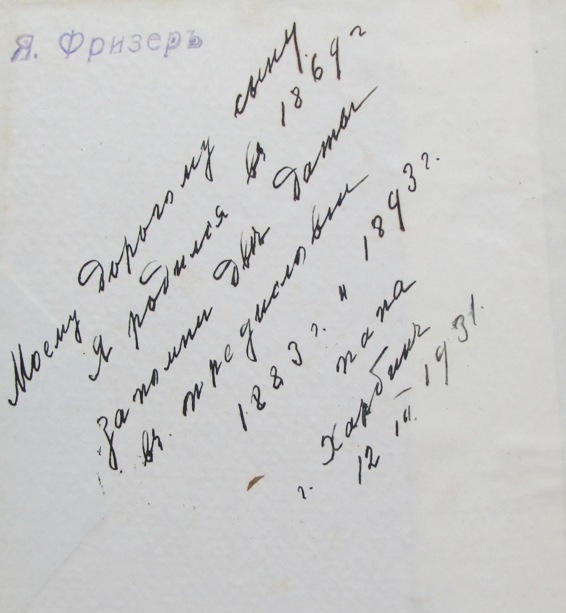 Я. Фризеръ
Моему дорогому сыну.
Я родился въ 1869 г
Запомни двѣ даты
въ предисловіи
1883 г. и 1893 г.
папа
г. Харбинъ
12 III – 1931.